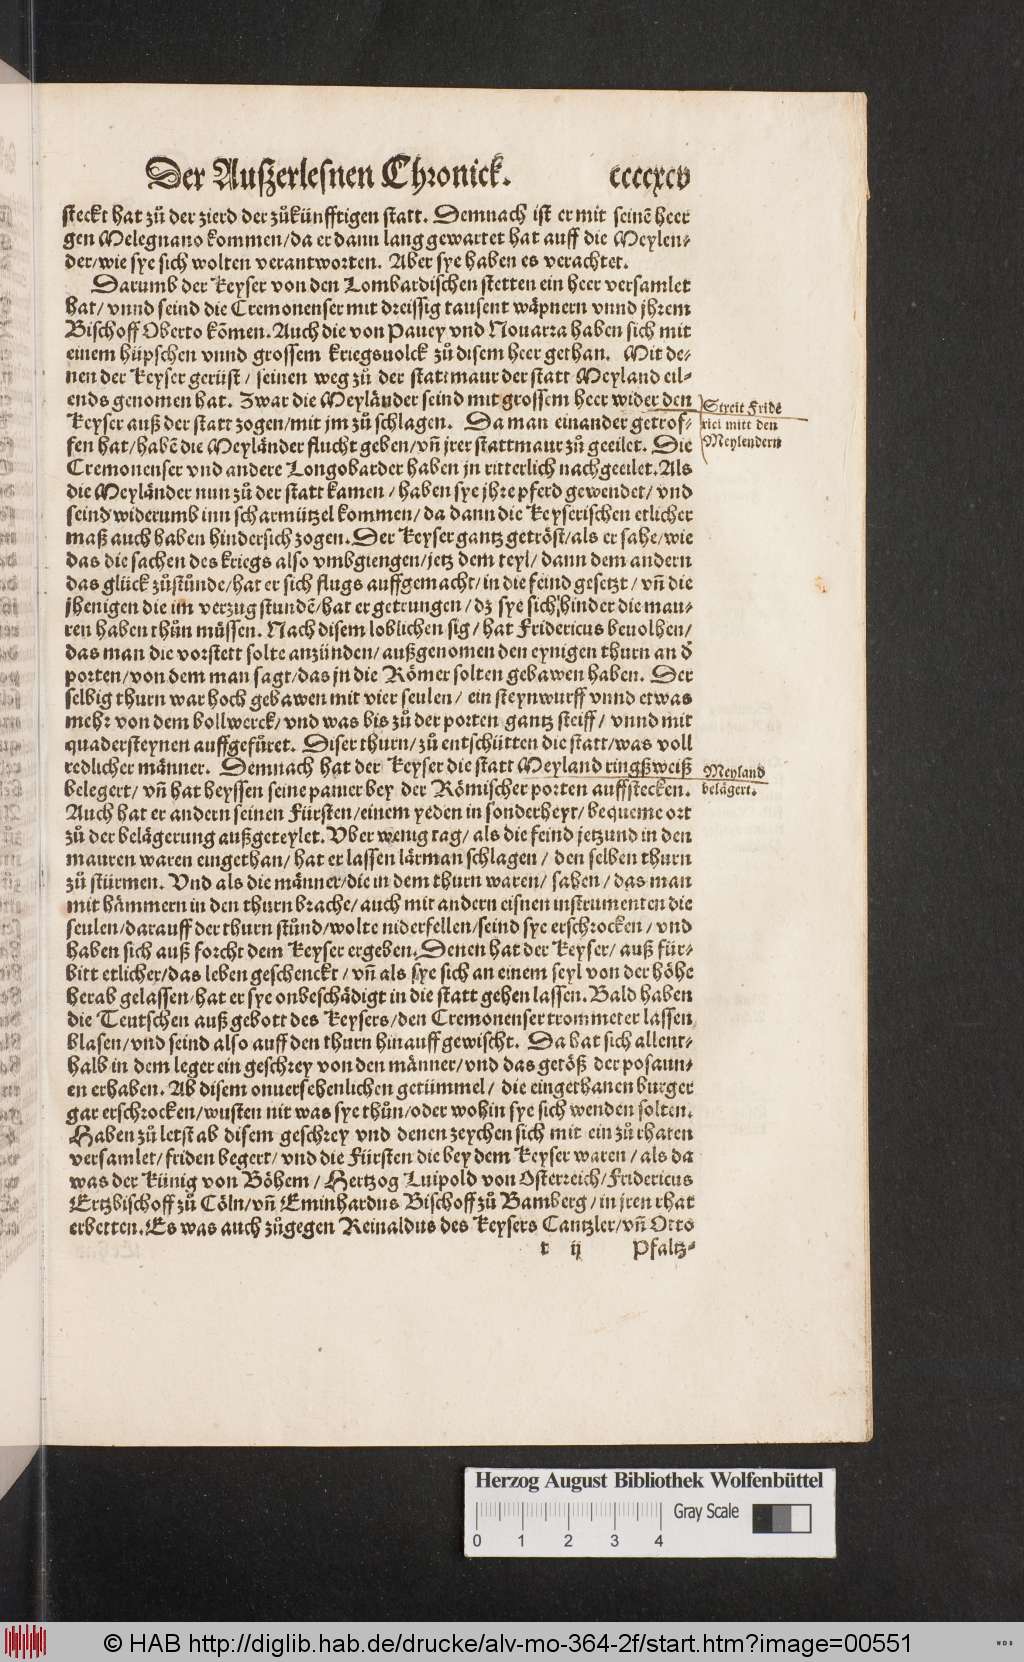 Der Außerlesnen Chronick. ccccxcv
steckt hat zů der zierd der zůkünfftigen statt. Demnach ist er mit seinẽ heer
gen Melegnano kommen/da er dann lang gewartet hat auff die Meylen-
der/wie sye sich wolten verantworten. Aber sye haben es verachtet.
Darumb der Keyser von den Lombardischen stetten ein heer versamlet
hat/ vnnd seind die Cremonenser mit dreissig tausent wäpnern vnnd jhrem
Bischoff Oberto kõmen. Auch die von Pauey vnd Nouarra haben sich mit
einem hüpschen vnnd grossem kriegsuolck zů disem heer gethan. Mit de-
nen der Keyser gerüst/ seinen weg zů der stattmaur der statt Meyland eil-
ends genomen hat. Zwar die Meyländer seind mit grossem heer wider den
Keyser auß der statt zogen/mit jm zů schlagen. Da man einander getrof-
fen hat/habẽ die Meyländer flucht geben/vñ jrer stattmaur zů geeilet. Die
Cremonenser vnd andere Longobarder haben jn ritterlich nachgeeilet. Als
die Meyländer nun zů der statt kamen/ haben sye jhre pferd gewendet/ vnd
seind widerumb inn scharmützel kommen/ da dann die Keyserischen etlicher
maß auch haben hindersich zogen. Der Keyser gantz getröst/als er sahe/wie
das die sachen des kriegs also vmbgiengen/jetz dem teyl/ dann dem andern
das glück zůstůnde/hat er sich flugs auffgemacht/in die feind gesetzt/ vñ die
jhenigen die im verzug stundẽ/hat er getrungen/ dz sye sich hinder die mau-
ren haben thůn müssen. Nach disem loblichen sig/ hat Fridericus beuolhen/
das man die vorstett solte anzünden/ außgenomen den eynigen thurn an d̕
porten/von dem man sagt/das jn die Römer solten gebawen haben. Der
selbig thurn war hoch gebawen mit vier seulen/ ein steynwurff vnnd etwas
mehr von dem bollwerck/vnd was bis zů der porten gantz steiff/ vnnd mit
quadersteynen auffgefüret. Diser thurn/zů entschütten die statt/was voll
redlicher männer. Demnach hat der Keyser die statt Meyland ringßweiß
belegert/ vñ hat heyssen seine paner bey der Römischer porten auffstecken.
Auch hat er andern seinen Fürsten/einem yeden in sonderheyt/bequeme ort
zů der belägerung außgeteylet. Vber wenig tag/ als die feind jetzund in den
mauren waren eingethan/ hat er lassen lärman schlagen/ den selben thurn
zů stürmen. Vnd als die männer/die in dem thurn waren/ sahen/ das man
mit hämmern in den thurn brache/auch mit andern eisnen instrumenten die
seulen/darauff der thurn stůnd/wolte niderfellen/seind sye erschrocken/ vnd
haben sich auß forcht dem Keyser ergeben. Denen hat der Keyser/ auß für-
bitt etlicher/das leben geschenckt/ vñ als sye sich an einem seyl von der höhe
herab gelassen/hat er sye onbeschädigt in die statt gehen lassen. Bald haben
die Teutschen auß gebott des Keysers/den Cremonenser trommeter lassen
blasen/vnd seind also auff den thurn hinauff gewischt. Da hat sich allent-
halb in dem leger ein geschrey von den männer/vnd das getöß der posaun-
en erhaben. Ab disem onuersehenlichen getümmel/ die eingethanen burger
gar erschrocken/wusten nit was sye thůn/oder wohin sye sich wenden solten.
Haben zů letst ab disem geschrey vnd denen zeychen sich mit ein zů rhaten
versamlet/friden begert/vnd die Fürsten die bey dem Keyser waren/als da
was der Künig von Böhem/ Hertzog Luipold von Osterreich/Fridericus
Ertzbischoff zů Cöln/vñ Eminhardus Bischoff zů Bamberg/in jren rhat
erbetten. Es was auch zůgegen Reinaldus des Keysers Cantzler/vñ Otto
t ij Pfaltz-
Streit Fridẽ
rici mitt den
Meylendern
Meyland
belägert.
Herzog August Bibliothek Wolfenbüttel
Gray Scale
0 1 2 3 4
© HAB http://diglib.hab.de/drucke/alv-mo-364-2f/start.htm?image=00551